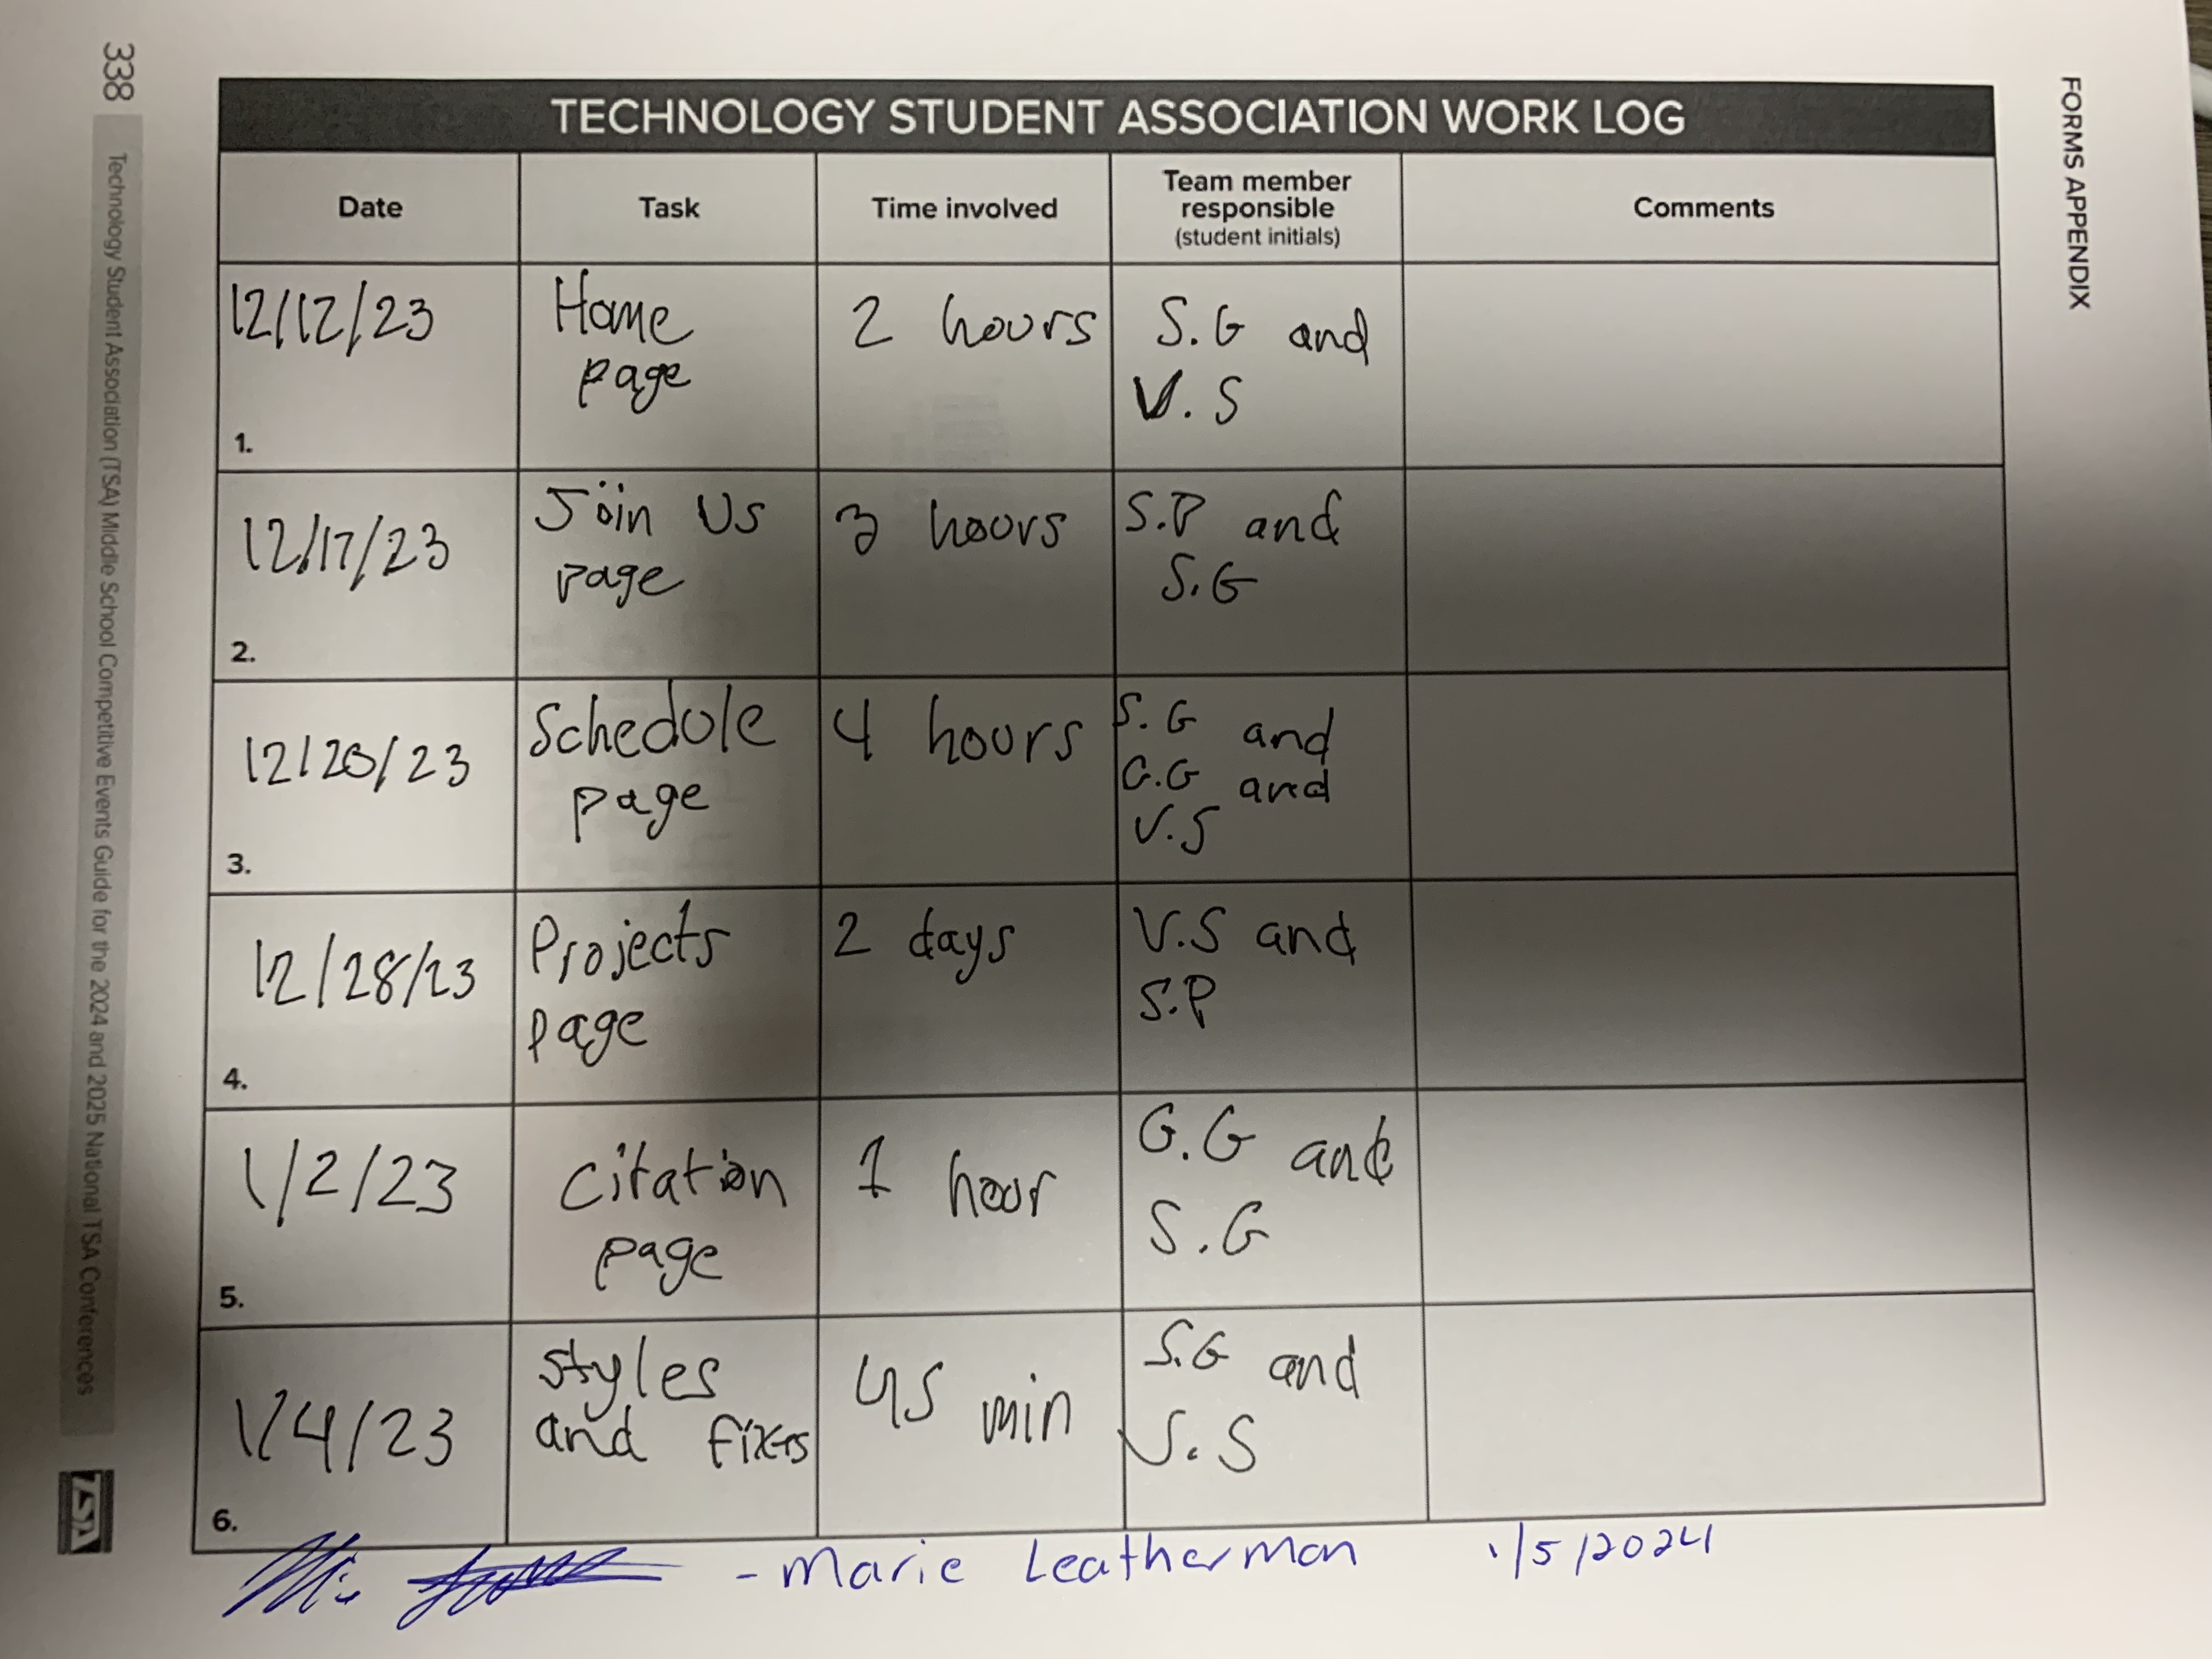 FORMS APPENDIX
TECHNOLOGY STUDENT ASSOCIATION WORK LOG
Date
Task
Time involved
Team member
responsible
(student initials)
Comments
1.
12/12/23
Home
page
2 hours
S.G and
V.S
2.
12/17/23
Join us
page
3 hours
S.P and
S.G
3.
12/20/23
Schedule
page
4 hours
S.G and
G.G and
V.S
4.
12/28/23
Projects
page
2 days
V.S and
S.P
5.
1/2/23
Citation
page
1 hour
G.G and
S.G
6.
1/4/23
Styles
and fixes
45 min
S.G and
V.S
- Marie Leatherman 1/5/2024
338 Technology Student Association (TSA) Middle School Competitive Events Guide for the 2024 and 2025 National TSA Conferences
TSA